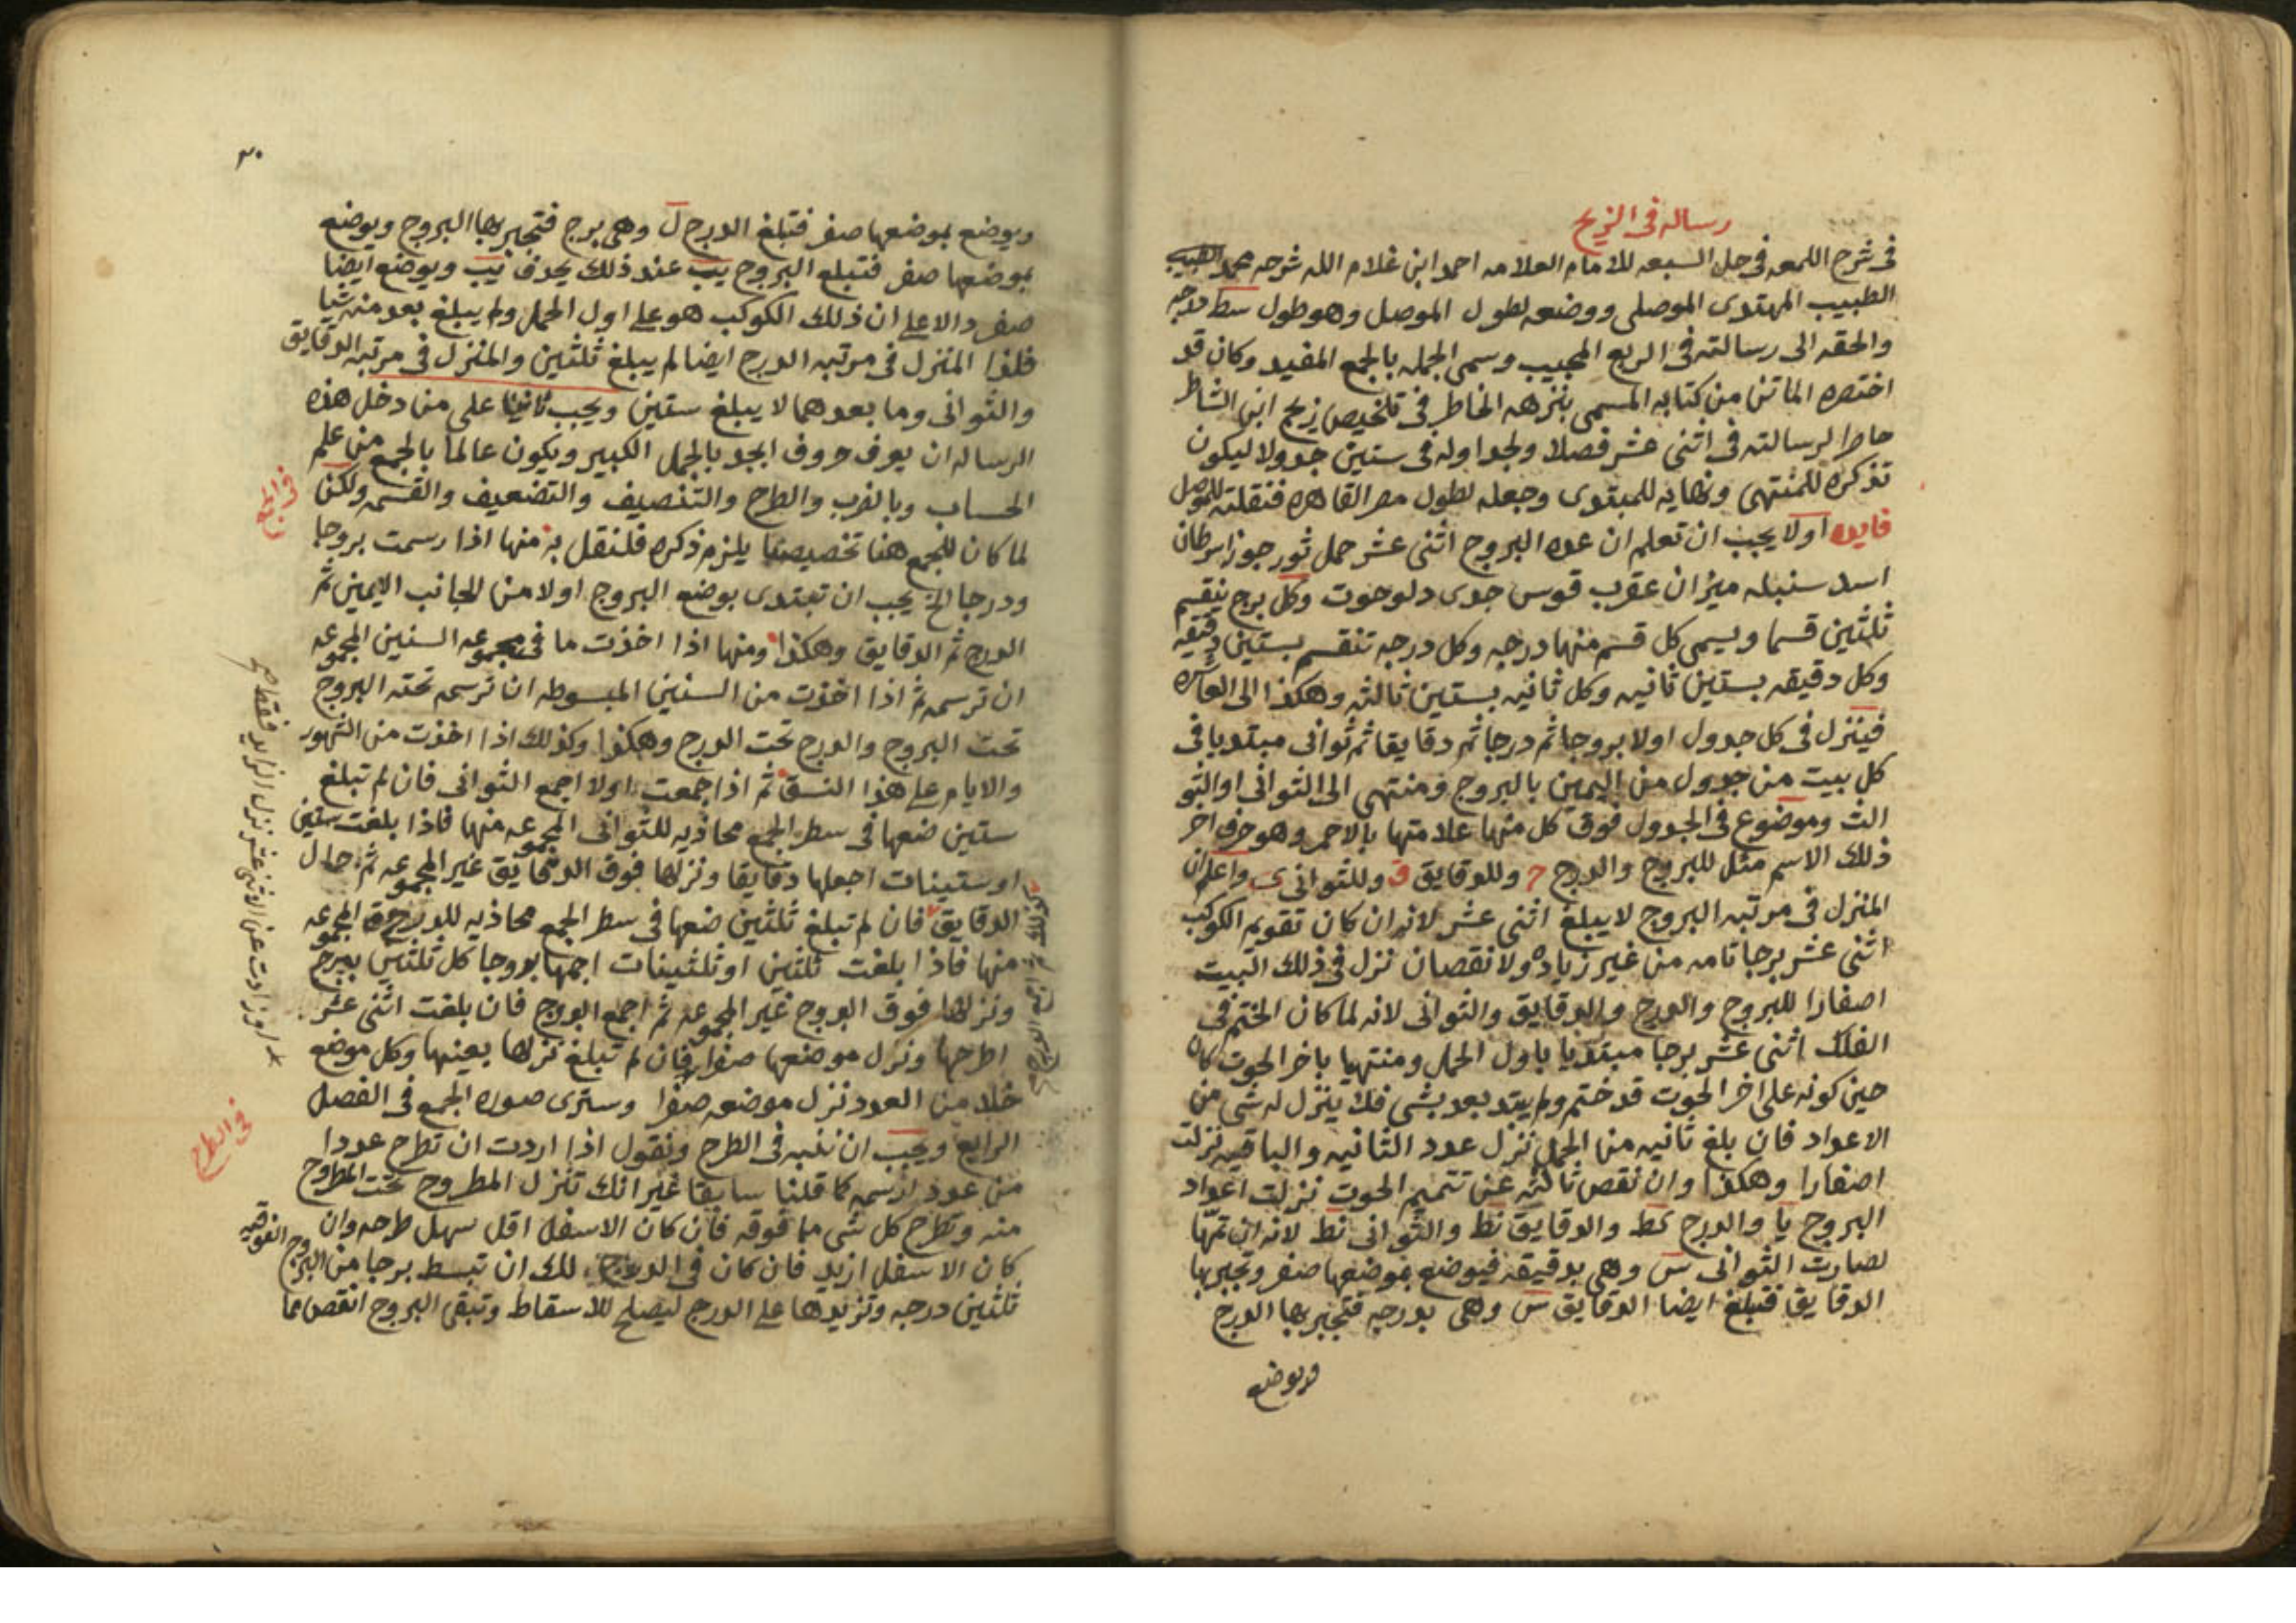 رساله فى الزيج
فى شرح اللمعه فى حل السبعه للامام العلامه احمد ابن غلام الله شرحه محمد
الطبيب المهتدى الموصلى ووضعه لطول الموصل وهو طول سط درجه
والحقه الى رسالته فى الربع المجيب وسمى الجمله بالجمع المفيد وكان قد
اختصره الماتن من كتابه المسمى بنزهه الخاطر فى تلخيص زيج ابن الشاطر
حاصرا لرسالته فى اثنى عشر فصلا ولجداوله فى ستين جدولا ليكون
تذكره للمنتهى ونهايه للمبتدى وجعله لطول مصر القاهره فنقلته للموصل
فايده اولا يجب ان تعلم ان عده البروج اثنى عشر حمل ثور جوزا سرطان
اسد سنبله ميزان عقرب قوس جدى دلو حوت وكل برج ينقسم
ثلثين قسما ويسمى كل قسم منها درجه وكل درجه تنقسم بستين دقيقه
وكل دقيقه بستين ثانيه وكل ثانيه بستين ثالثه وهكذا الى العاشره
فينزل فى كل جدول اولا بروجا ثم درجا ثم دقايقا ثم ثوانى مبتديا فى
كل بيت من جدول من اليمين بالبروج ومنتهى الى الثوانى او الثو
الث وموضوع فى الجدول فوق كل منها علامتها بالاحمر وهو حرف اخر
ذلك الاسم مثل للبروج والدرج ج وللدقايق ق وللثوانى ى واعلم ان
المنزل فى مرتبه البروج لا يبلغ اثنى عشر لانه ان كان تقويم الكوكب
اثنى عشر برجا تامه من غير زياده ولا نقصان نزل فى ذلك البيت
اصفارا للبروج والدرج والدقايق والثوانى لانه لما كان الختم فى
الفلك اثنى عشر برجا مبتديا باول الحمل ومنتهيا باخر الحوت كان
حين كونه على اخر الحوت قد ختم ولم يبتد بعد بشى فلا ينزل له شى من
الاعداد فان بلغ ثانيه من الحمل نزل عدد الثانيه والباقيه نزلت
اصفارا وهكذا وان نقص ثالثه عن تتميم الحوت نزلت اعداد
البروج يا والدرج كط والدقايق نط والثوانى نط لانه ان تمها
لصارت الثوانى س وهى بدقيقه فيوضع بموضعها صفر وتجبر بها
الدقايق فتبلغ ايضا الدقايق س وهى بدرجه فتجبر بها الدرج
ويوضع
٣٠
ويوضع بموضعها صفر فتبلغ الدرج ل وهى برج فتجبر بها البروج ويوضع
بموضعها صفر فتبلغ البروج يب عند ذلك يحذف يب ويوضع ايضا
صفر دالا على ان ذلك الكوكب هو على اول الحمل ولم يبلغ بعد منه شيا
فلذا المنزل فى مرتبه الدرج ايضا لم يبلغ ثلثين والمنزل فى مرتبه الدقايق
والثوانى وما بعدهما لا يبلغ ستين ويجب ثانيا على من دخل هذه
الرساله ان يعرف حروف ابجد بالجمل الكبير ويكون عالما بالجمع من علم
الحساب وبالضرب والطرح والتنصيف والتضعيف والقسمه ولكن
فى الجمع
لما كان للجمع هنا تخصيصا يلزم ذكره فلنقل به منها اذا رسمت بروجا
ودرجا الخ يجب ان تبتدى بوضع البروج اولا من الجانب الايمن ثم
الدرج ثم الدقايق وهكذا ومنها اذا اخذت ما فى مجموعه السنين المجموعه
ان ترسمه ثم اذا اخذت من السنين المبسوطه ان ترسمه تحته البروج
تحت البروج والدرج تحت الدرج وهكذا وكذلك اذا اخذت من الشهور
والايام على هذا النسق ثم اذا جمعت اولا اجمع الثوانى فان لم تبلغ
ستين ضعها فى سطر الجمع محاذيه للثوانى المجموعه منها فاذا بلغت ستين
او ستينات اجعلها دقايقا ونزلها فوق الدقايق غير المجموعه ثم حال
الدقايق فان لم تبلغ ثلثين ضعها فى سطر الجمع محاذيه للدرج المجموعه
منها فاذا بلغت ثلثين او ثلثينات اجعلها بروجا كل ثلثين ببرج
ونزلها فوق البروج غير المجموعه ثم اجمع البروج فان بلغت اثنى عشر
اطرحها ونزل موضعها صفرا فان لم تبلغ نزلها بعينها وكل موضع
خلا من العدد نزل موضعه صفرا وسترى صوره الجمع فى الفصل
الرابع ويجب ان ننبه فى الطرح ونقول اذا اردت ان تطرح عددا
فى الطرح
من عدد ارسمه كما قلنا سابقا غير انك تنزل المطروح تحت المطروح
منه وتطرح كل شى مما فوقه فان كان الاسفل اقل سهل طرحه وان
كان الاسفل ازيد فان كان فى الدرج لك ان تبسط برجا من البروج الفوقيه
ثلثين درجه وتزيدها على الدرج ليصلح للاسقاط وتبقى البروج انقص مما
كذلك ثم اجمع الدرج
او زادت عن الاثنى عشر نزل الزايد فقط صح